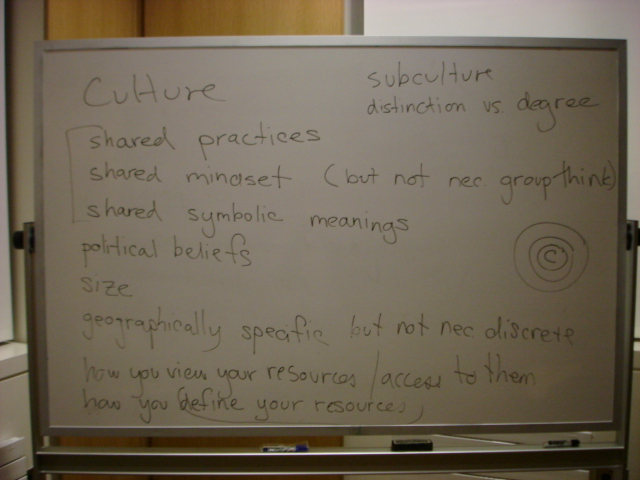 Culture
subculture
distinction vs. degree
shared practices
shared mindset (but not nec. groupthink)
shared symbolic meanings
political beliefs
C
size
geographically specific but not nec. discrete
how you view your resources / access to them
how you define your resources